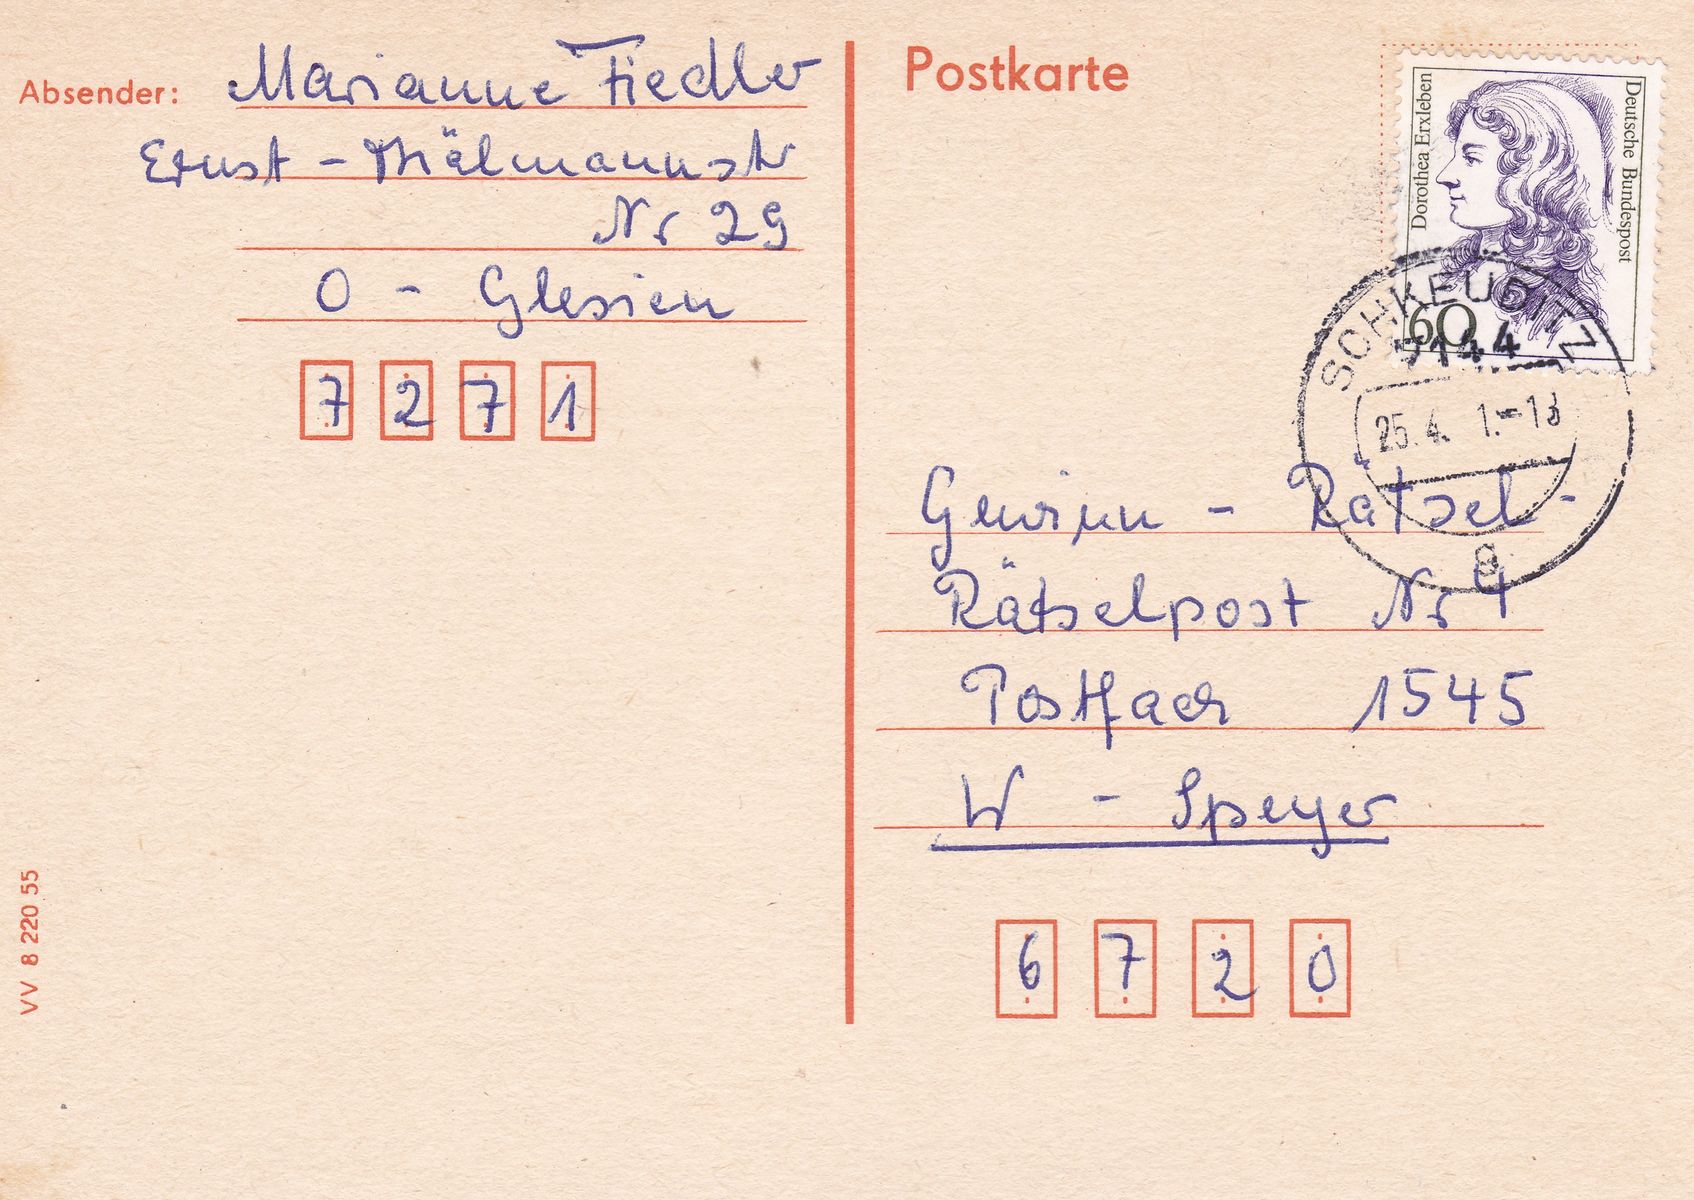 Absender: Marianne Fiedler
Ernst-Thälmannstr
Nr 29
O - Glesien
7271
VV 8 220 55
Postkarte
Dorothea Erxleben
Deutsche Bundespost
60
SCHKEUDITZ
7144
25.4.
Gewinn - Rätsel -
Rätselpost Nr 4
Postfach 1545
W - Speyer
6720